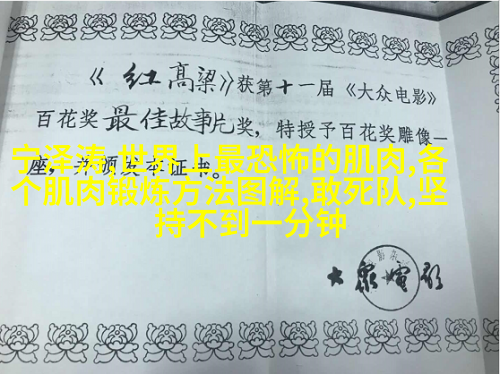 《红高粱》获第十一届《大众电影》
百花奖最佳故事片奖，特授予百花奖雕像一
座，并颁发本证书。
宁泽涛,世界上最恐怖的肌肉,各
个肌肉锻炼方法图解,敢死队,坚
持不到一分钟
大众电影